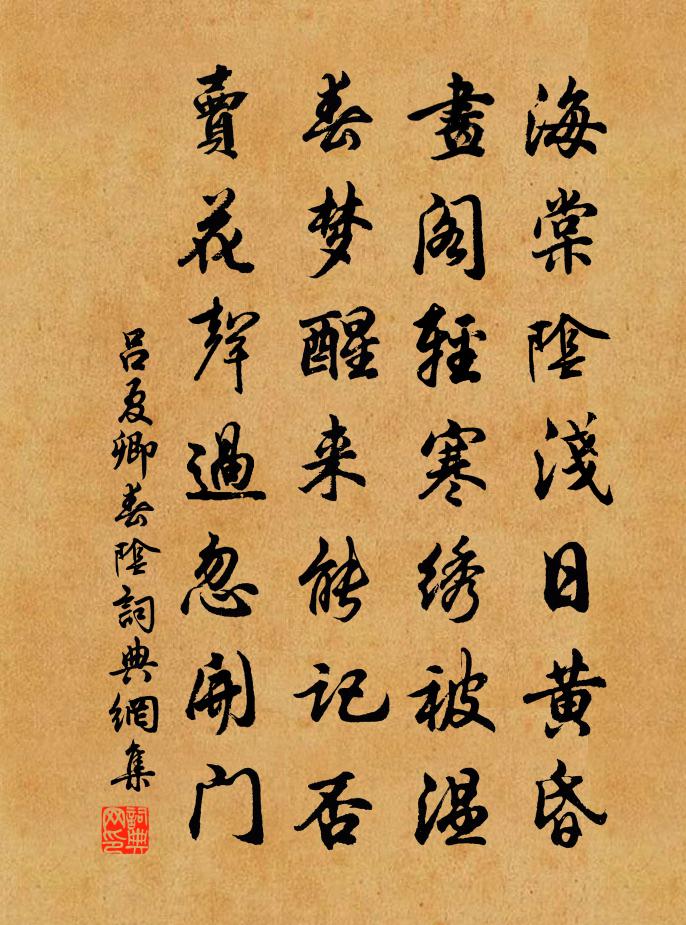 海棠陰淺日黄昏
畫阁輕寒绣被温
春梦醒来能记否
賣花聲過忽開门
吕夏卿春陰詞典網集
詞典网印